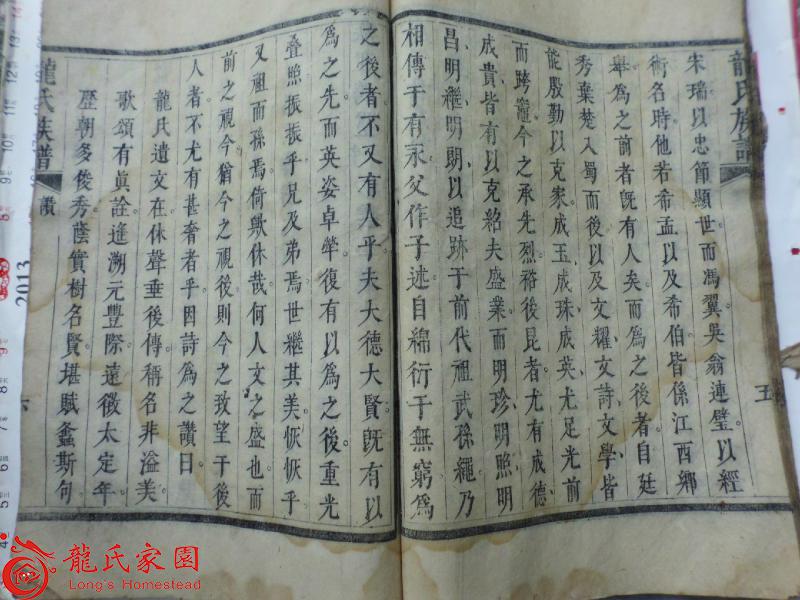 龍氏族譜
五
朱瑞以忠節顯世而馮翼吳翁連璧以經
術名時他若希孟以及希伯皆係江西鄉
舉為之前者既有人矣而為之後者自廷
秀葉楚入蜀而後以及文耀文詩文學皆
能殷勤以克家成玉成珠成英尤足光前
而跨竈今之承先烈裕後昆者尤有成德
成貴皆有以克紹夫盛業而明珍明照明
昌明繼明朗以追跡于前代祖武孫繩乃
相傳于有永父作子述自綿衍于無窮為
之後者不又有人乎夫大德大賢既有以
為之先而英姿卓犖復有以為之後重光
疊照振振乎兄及弟焉世繼其美恢恢乎
又祖而孫焉倚歟休哉何人文之盛也而
前之視今猶今之視後則今之致望于後
人者不尤有甚奢者乎因詩為之讚曰
龍氏遺文在休聲垂後傳稱名非溢美
歌頌有眞詮逢溯元豐際遠徵太定年
歷朝多俊秀蔭實樹名賢堪賦螽斯句
龍氏族譜
讚
六
2013
龍氏家園
Long's Homestead